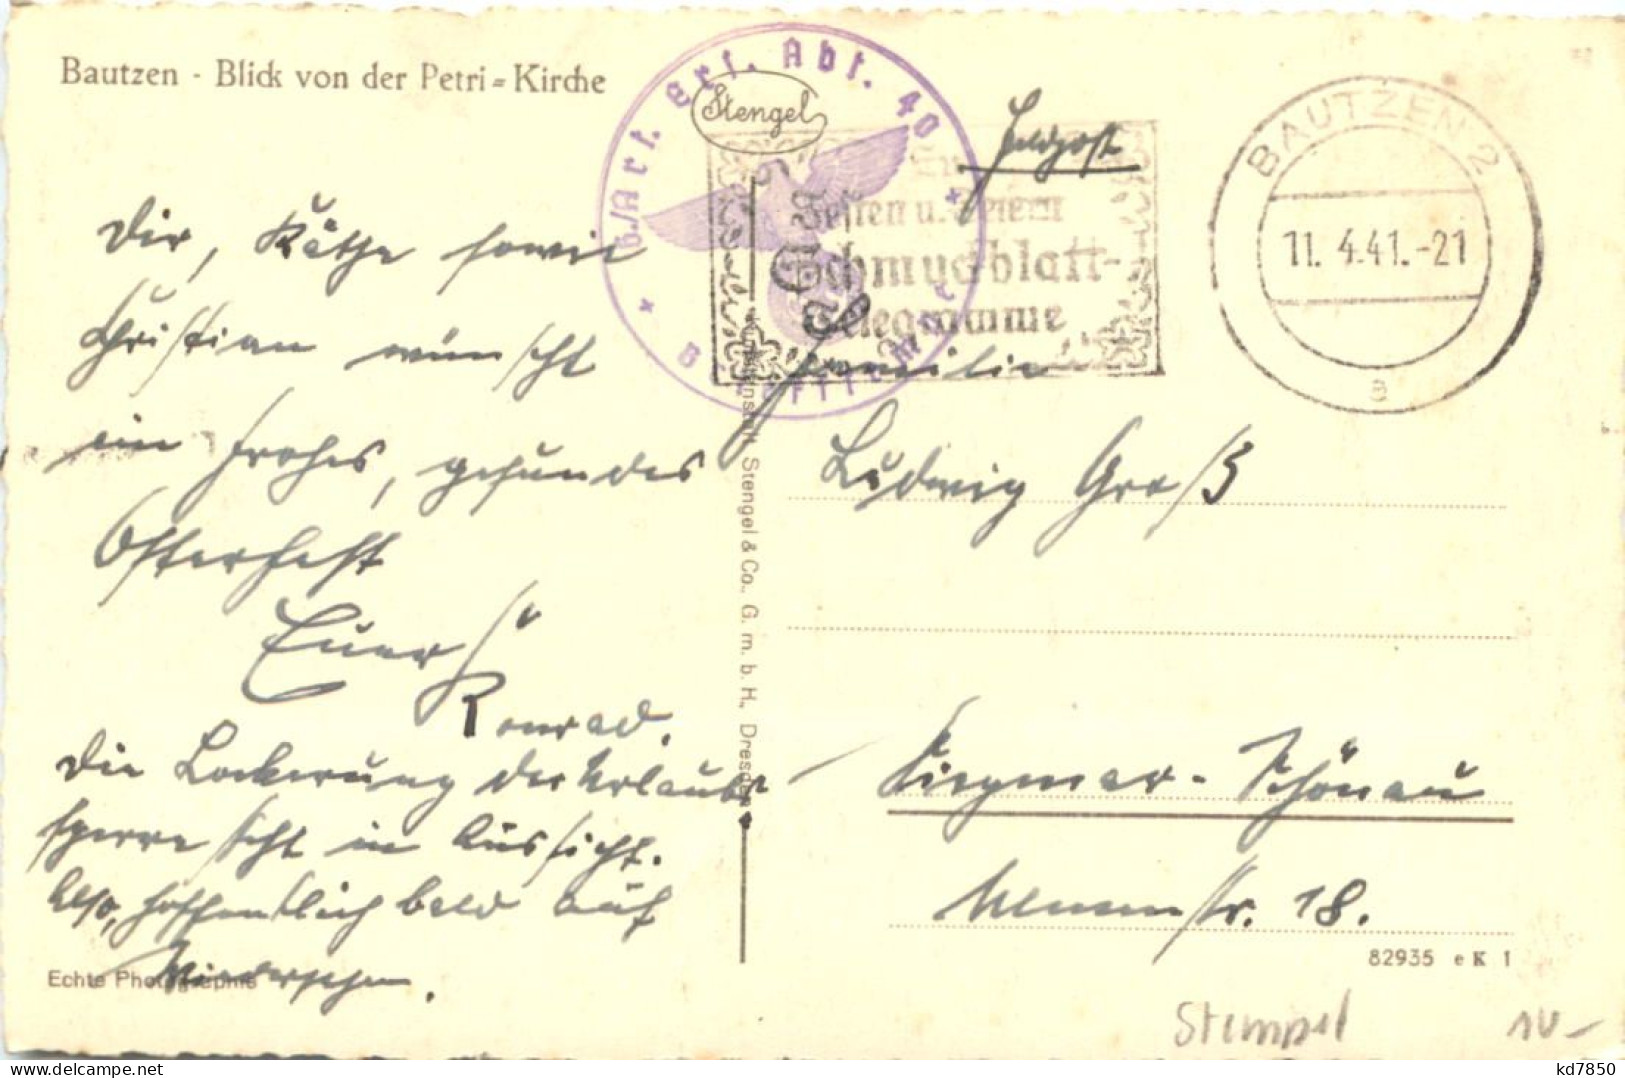 Bautzen - Blick von der Petri=Kirche
Stengel
6./Art. Ers. Abt. 40
Feldpost
BAUTZEN 2
11. 4.41.-21
a
u.
Schmuckblatt-
telegramme
Dir, Käthe sowie
Christian wünscht
ein frohes, gesundes
Osterfest
Euer
Konrad.
Die Lockerung der Urlaubs
sperre steht in Aussicht.
Also, hoffentlich bald auf
Wiedersehen.
Echte Photographie
Stengel & Co., G. m. b. H., Dresden
Familie
Ludwig Groß
Siegmar-Schönau
18.
82935 e K 1
Stempel
10-
akpool.de
kd7850